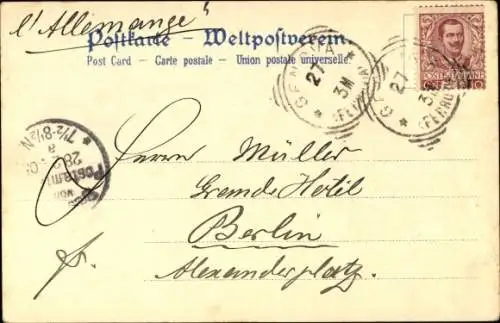 l'Allemange"
Postkarte – Weltpostverein.
Post Card – Carte postale – Union postale universelle.
GENOVA
27
3M
(FERROVIA)
GENOVA
27
3M
(FERROVIA)
POSTE ITALIANE
10
7½-8½N
28
Postamt
Herrn Müller
Grande Hotel
Berlin
Alexanderplatz.